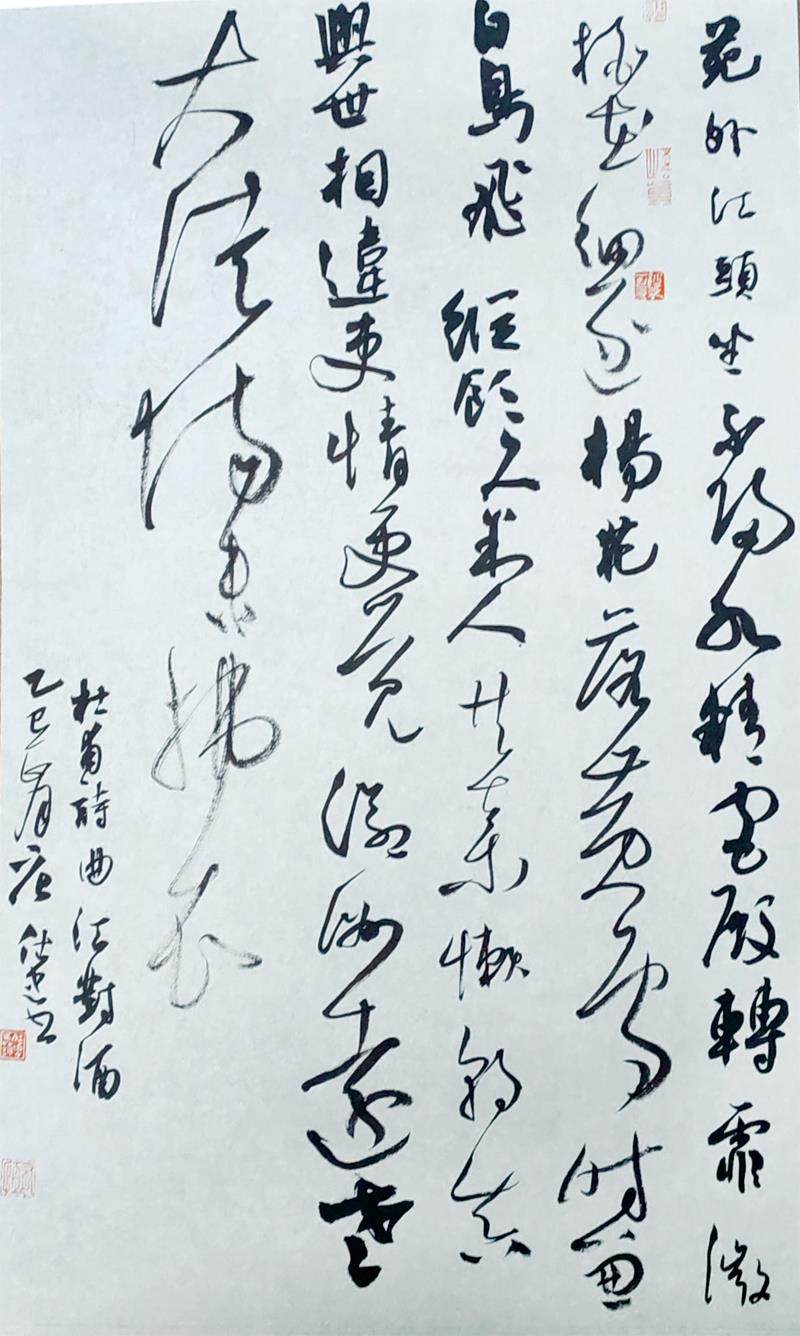 苑外江頭坐不歸水精宮殿轉霏微
桃花細逐楊花落黃鳥時兼
白鳥飛縱飲久判人共棄懶朝真
與世相違吏情更覺滄洲遠老
大徒傷未拂衣
杜甫詩曲江對酒
乙巳月